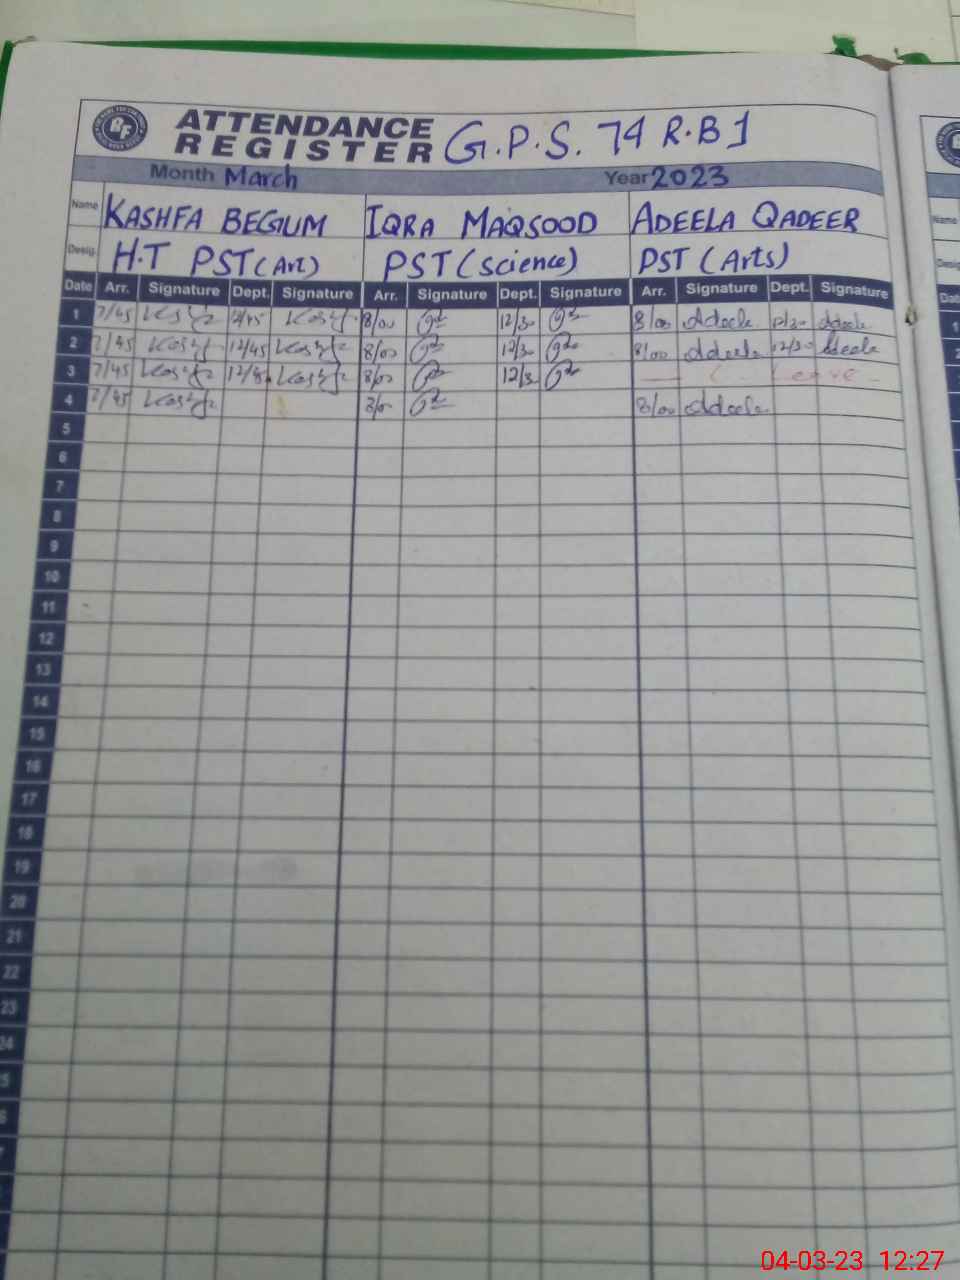 ATTENDANCE REGISTER G.P.S. 74 R.B 1
Month March Year 2023
Name KASHFA BEGUM IQRA MAQSOOD ADEELA QADEER
Desig. H.T PST (Art) PST (Science) PST (Arts)
Date Arr. Signature Dept. Signature Arr. Signature Dept. Signature Arr. Signature Dept. Signature
1 7/45 12/45 8/00 12/30 8/00 Adeela 12/30 Adeela
2 7/45 12/45 8/00 12/30 8/00 Adeela 12/30 Adeela
3 7/45 8/00 12/3 Leave
4 7/45 8/00 8/00 Adeela
5
6
7
8
9
10
11
12
13
14
15
16
17
18
19
20
21
22
23
24
04-03-23 12:27